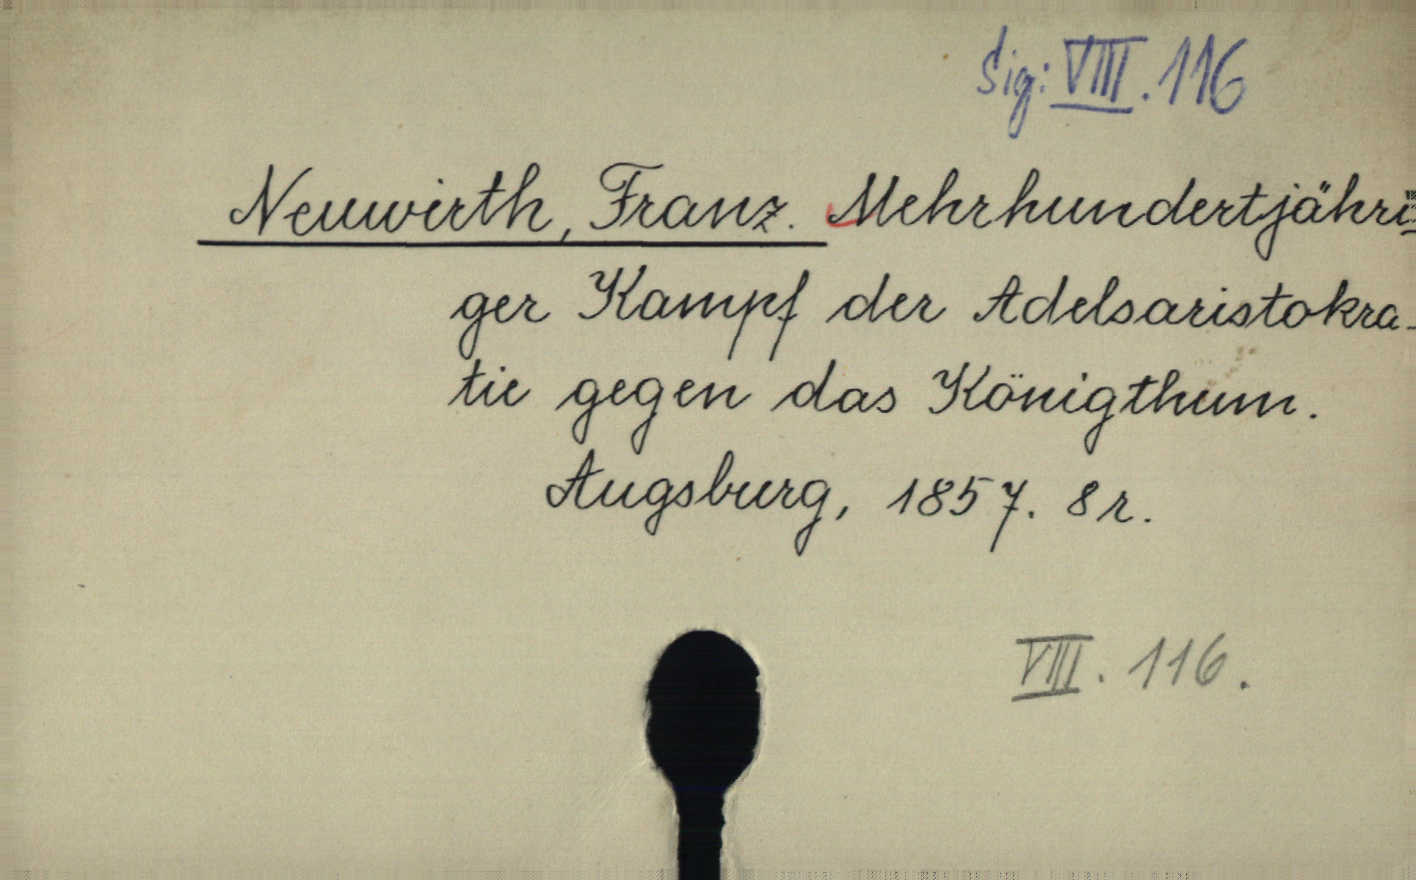 Sig: VIII. 116
Neuwirth, Franz. Mehrhundertjähri-
ger Kampf der Adelsaristokra-
tie gegen das Königthum.
Augsburg, 1857. 8r.
VIII. 116.